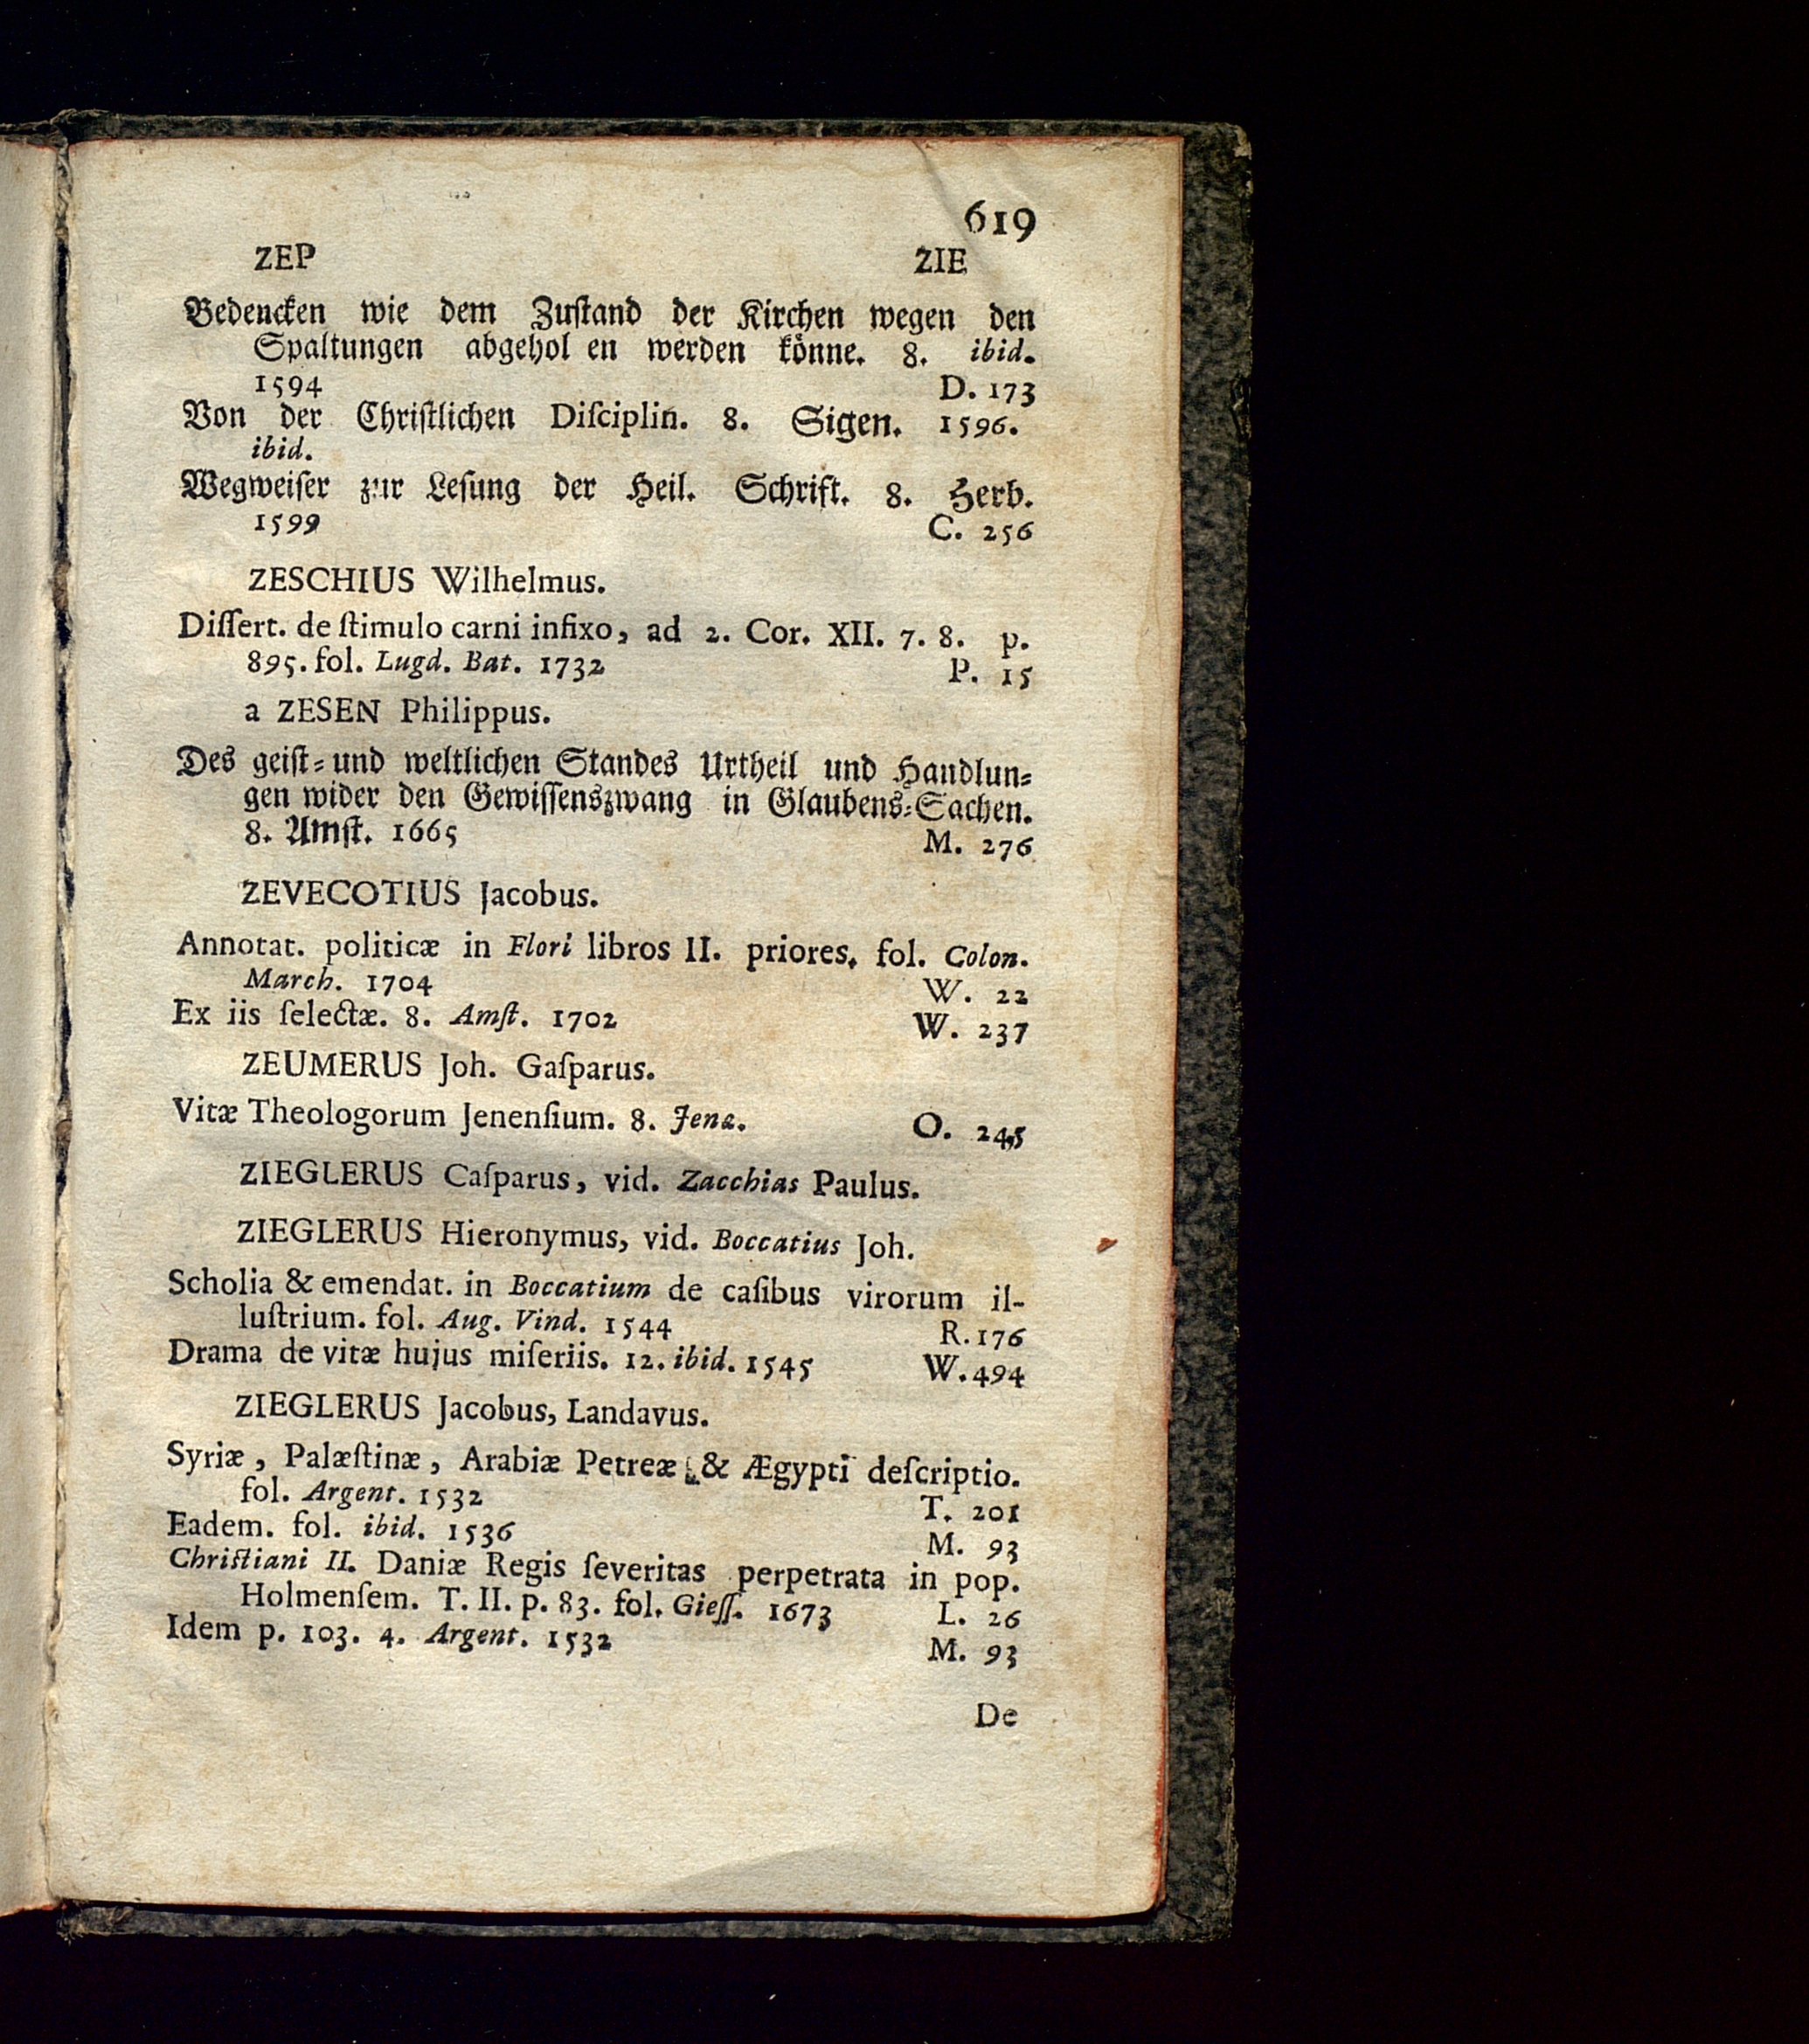 619
ZEP ZIE
Bedencken wie dem Zuſtand der Kirchen wegen den
Spaltungen abgehol en werden könne. 8. ibid.
1594 D. 173
Von der Chriſtlichen Diſciplin. 8. Sigen. 1596.
ibid.
Wegweiſer zur Leſung der Heil. Schrift. 8. Herb.
1599 C. 256
ZESCHIUS Wilhelmus.
Diſſert. de ſtimulo carni infixo, ad 2. Cor. XII. 7. 8. p.
895. fol. Lugd. Bat. 1732 P. 15
a ZESEN Philippus.
Des geiſt- und weltlichen Standes Urtheil und Handlun-
gen wider den Gewiſſenszwang in Glaubens-Sachen.
8. Amſt. 1665 M. 276
ZEVECOTIUS Jacobus.
Annotat. politicæ in Flori libros II. priores. fol. Colon.
March. 1704 W. 22
Ex iis ſelectæ. 8. Amſt. 1702 W. 237
ZEUMERUS Joh. Gaſparus.
Vitæ Theologorum Jenenſium. 8. Jena. O. 245
ZIEGLERUS Caſparus, vid. Zacchias Paulus.
ZIEGLERUS Hieronymus, vid. Boccatius Joh.
Scholia & emendat. in Boccatium de caſibus virorum il-
luſtrium. fol. Aug. Vind. 1544 R. 176
Drama de vitæ hujus miſeriis. 12. ibid. 1545 W. 494
ZIEGLERUS Jacobus, Landavus.
Syriæ, Palæſtinæ, Arabiæ Petreæ & Ægypti deſcriptio.
fol. Argent. 1532 T. 201
Eadem. fol. ibid. 1536 M. 93
Chriſtiani II. Daniæ Regis ſeveritas perpetrata in pop.
Holmenſem. T. II. p. 83. fol. Gieſſ. 1673 L. 26
Idem p. 103. 4. Argent. 1532 M. 93
De